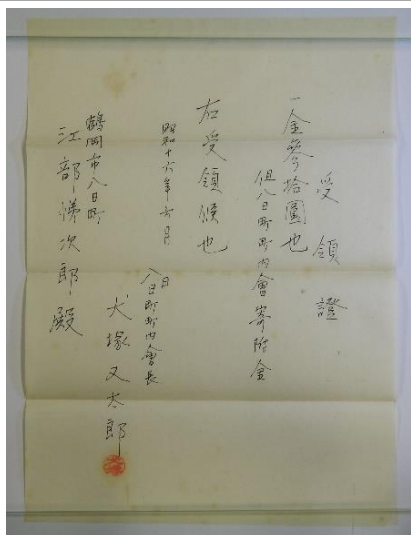 受領證
一金參拾圓也
但八日町町内會寄附金
右受領候也
昭和十六年六月
日
八日町町内會長
犬塚又太郎
鶴岡市八日町
江部 次郎殿